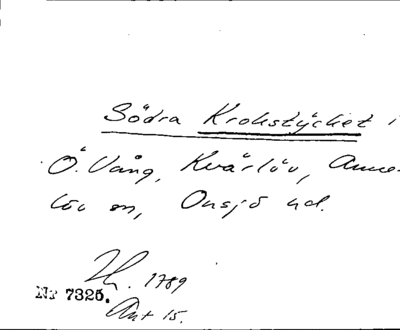 Södra Krokstycket i
Ö. Vång, Kvärlöv, Anne-
löv sn, Onsjö hd.
Nr 7325. 1789
Akt 15.